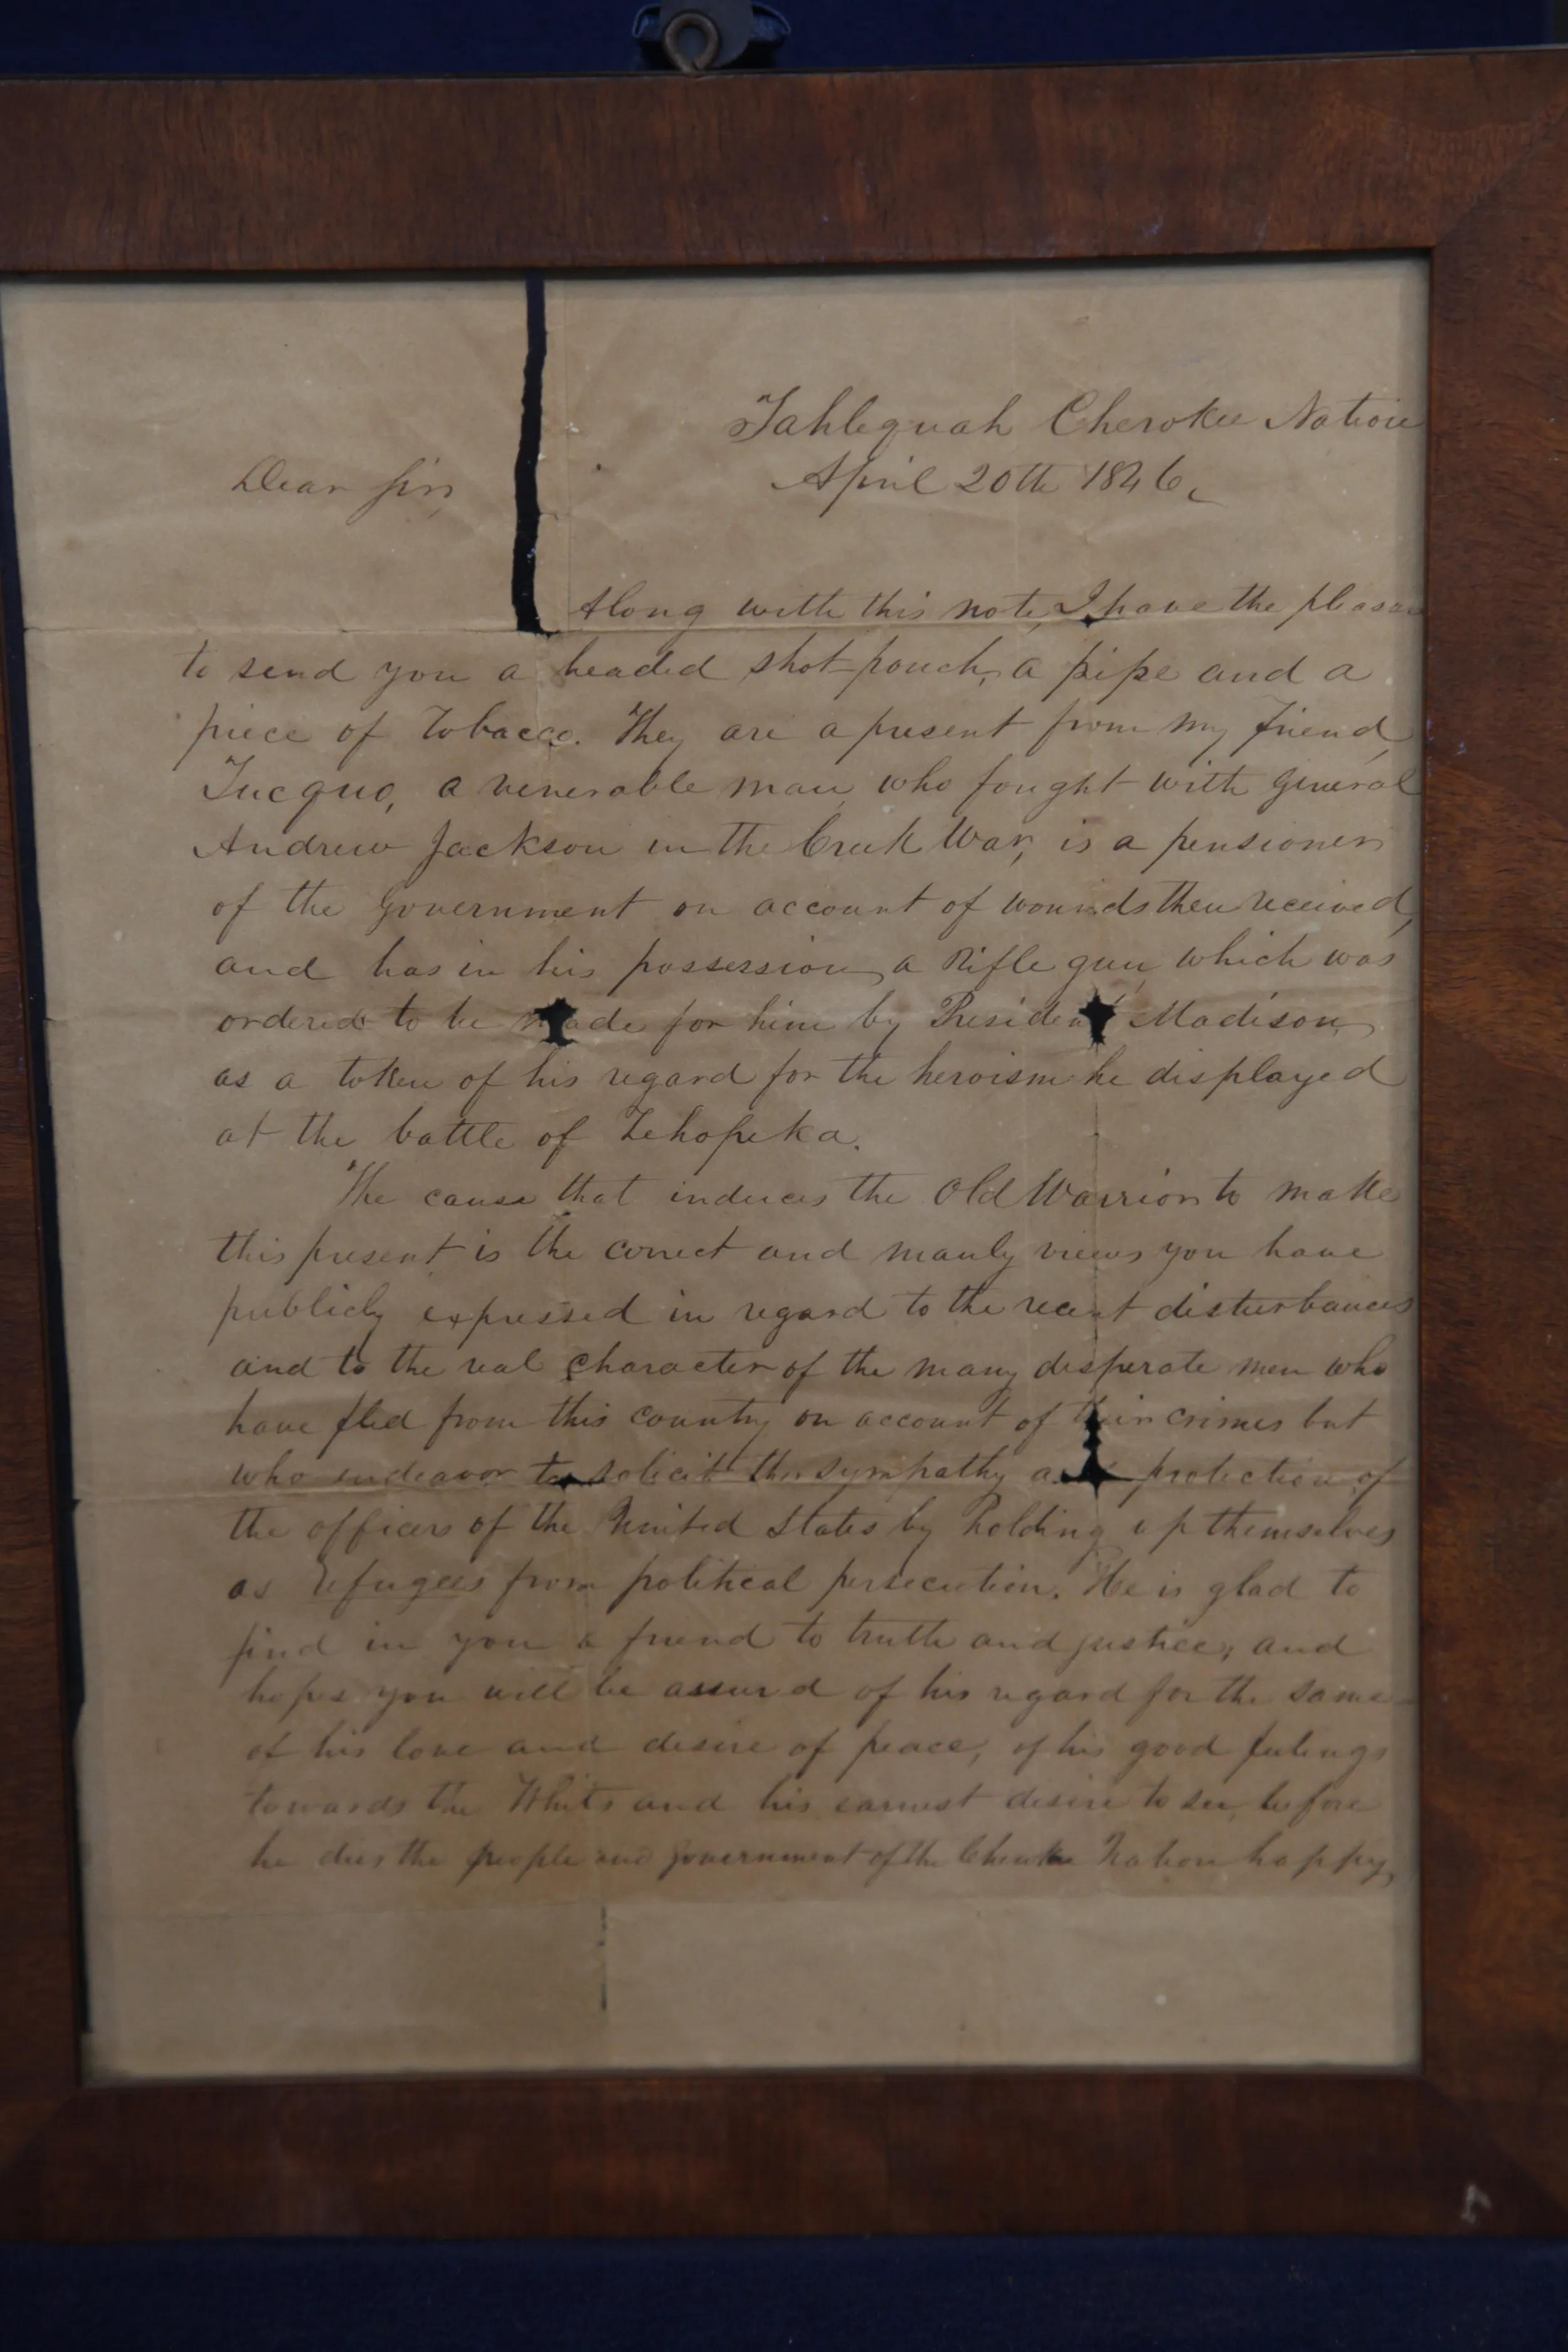 Tahlequah Cherokee Nation
April 20th 1846.
Dear Sir,
Along with this note, I have the pleasu
to send you a beaded shot-pouch, a pipe and a
piece of Tobacco. They are a present from my friend,
Tucquo, a venerable man, who fought with General
Andrew Jackson in the Creek War, is a pensioner
of the Government on account of wounds then received,
and has in his possession, a Rifle gun, which was
ordered to be made for him by President Madison,
as a token of his regard for the heroism he displayed
at the battle of Tehopeka.
The cause that induces the Old Warrior to make
this present is the correct and manly views you have
publicly expressed in regard to the recent disturbances
and to the real character of the many desperate men who
have fled from this country on account of their crimes but
who endeavor to solicit the sympathy and protection of
the officers of the United States by holding up themselves
as refugees from political persecution. He is glad to
find in you a friend to truth and justice, and
hopes you will be assured of his regard for the same
of his love and desire of peace, of his good feelings
towards the Whites and his earnest desire to see, before
he dies the people and government of the Cherokee Nation happy,